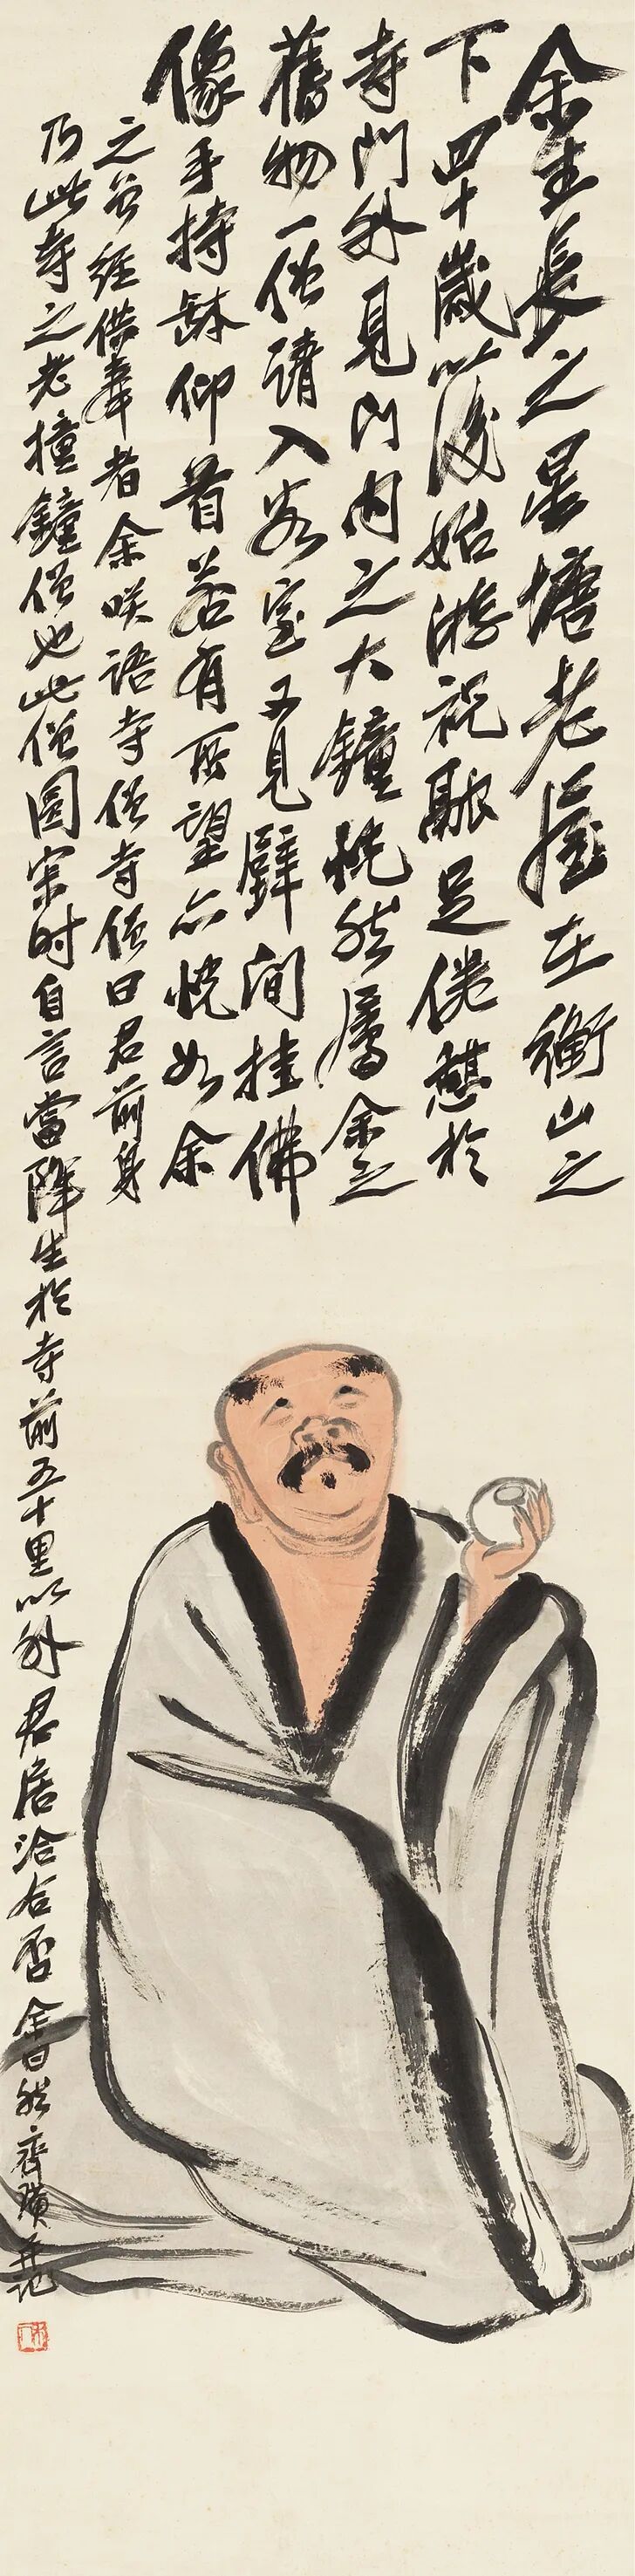 余生長之星塘老屋在衡山之
下四十歲以後始游祝融足倦憩於
寺門外見門内之大鐘恍然屬余之
舊物一僧請入客室又見壁間挂佛
像手持缽仰首若有所望亦恍如余
之曾經供奉者余咲語寺僧寺僧曰君前身
乃此寺之老撞鐘僧也此僧圓宗时自言當降生於寺前五十里以外君居洽合否余曰然齊璜并记